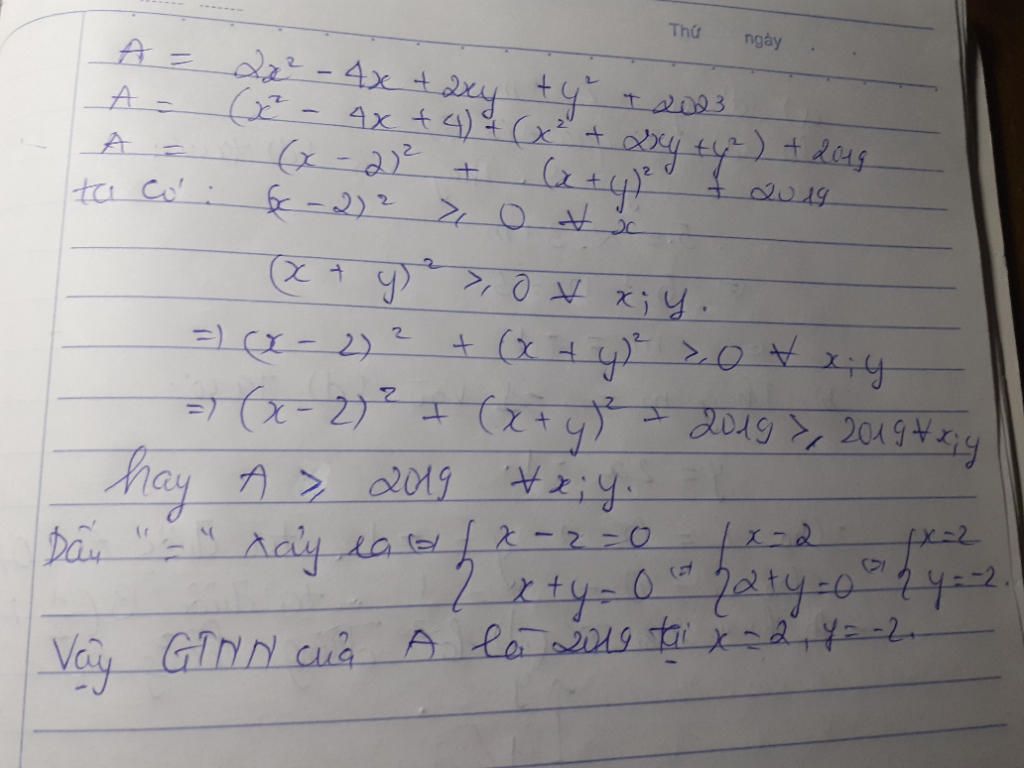 Thứ ngày
A = 2x² - 4x + 2xy + y² + 2023
A = (x² - 4x + 4) + (x² + 2xy + y²) + 2019
A = (x - 2)² + (x + y)² + 2019
ta có : (x - 2)² ≥ 0 ∀ x
(x + y)² ≥ 0 ∀ x; y.
=> (x - 2)² + (x + y)² ≥ 0 ∀ x; y
=> (x - 2)² + (x + y)² + 2019 ≥ 2019 ∀ x; y
hay A ≥ 2019 ∀ x; y.
Dấu "=" xảy ra <=> { x - 2 = 0 { x = 2 { x = 2
x + y = 0 <=> 2 + y = 0 <=> y = -2.
Vậy GTNN của A là 2019 tại x = 2, y = -2.